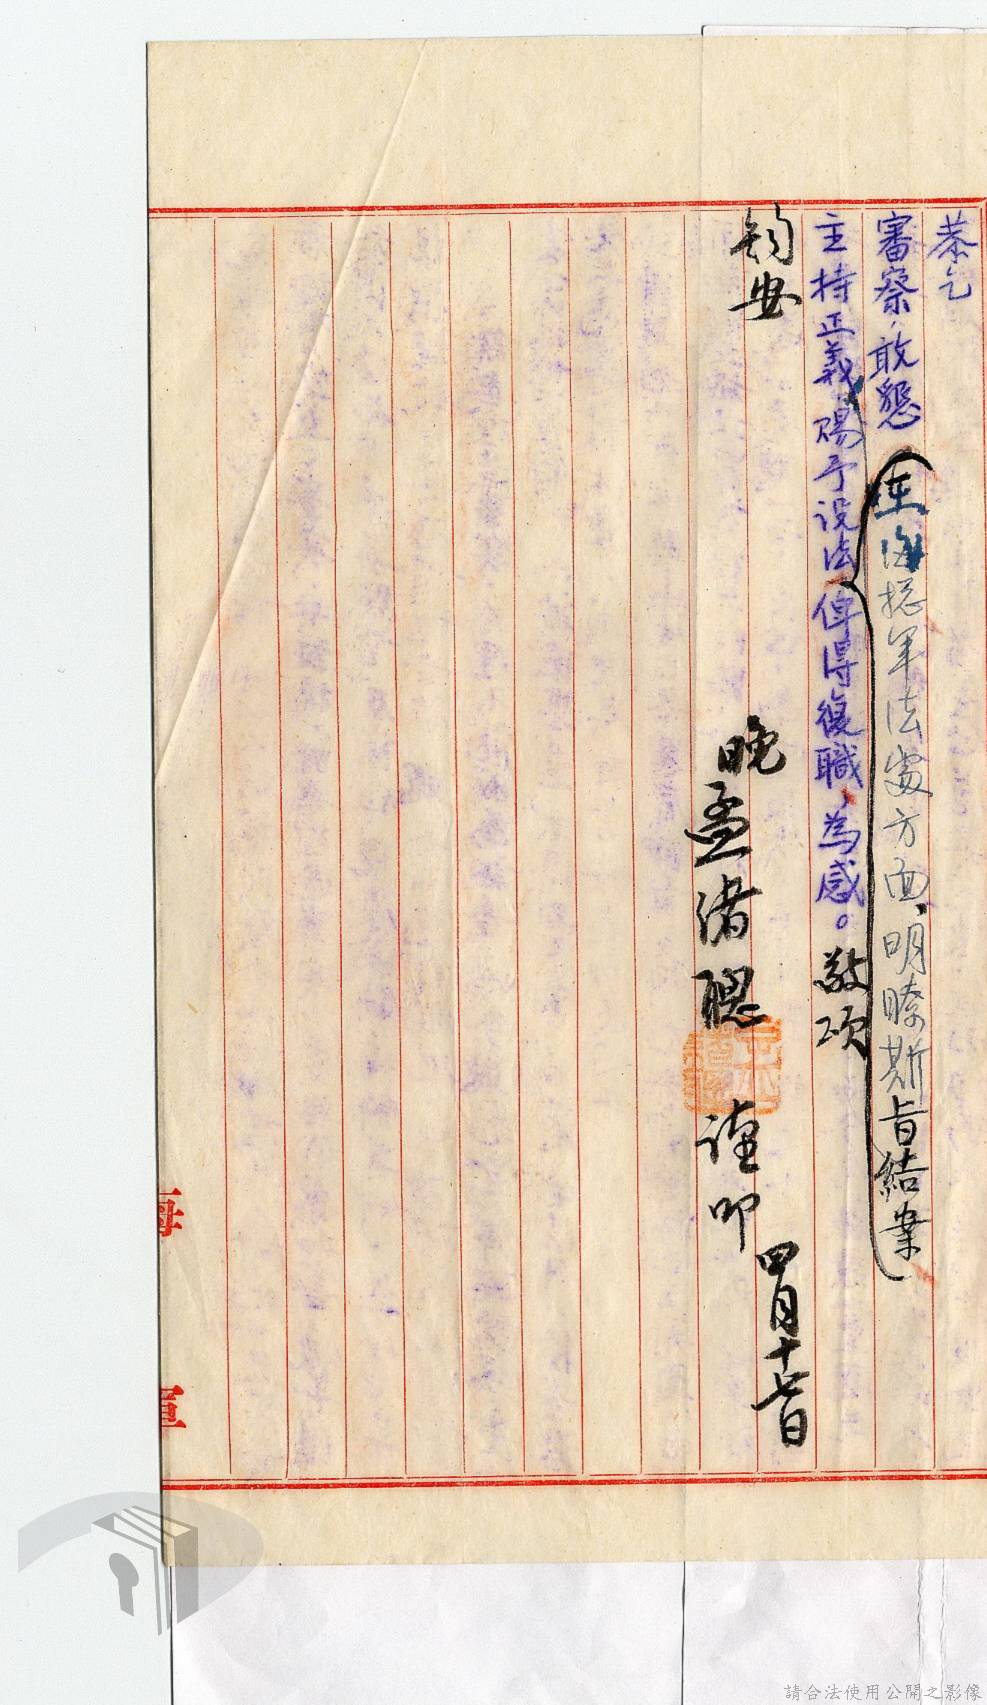 恭乞
審察，敢懇在海總軍法處方面、明瞭斯旨結案
主持正義、賜予設法俾得復職、為感。敬頌
鈞安
四月十七日
晚孟緒聰謹叩
海軍
請合法使用公開之影像